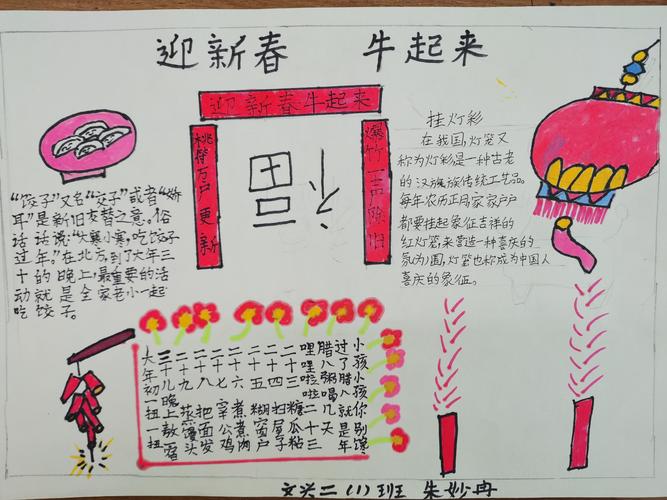 迎新春 牛起来
迎新春牛起来
桃符万户更新
爆竹一声除旧
福
"饺子"又名"交子"或者"娇
耳"是新旧交替之意。俗
话话说:"大寒小寒,吃饺子
过年。"在北方,到了大年三
十的晚上,最重要的活
动就是全家老小一起
吃饺子。
挂灯彩
在我国,灯笼又
称为灯彩是一种古老
的汉族族传统工艺品。
每年农历正月家家户户
都要挂起象征吉祥的
红灯笼来营造一种喜庆的
氛为围,灯笼也称成为中国人
喜庆的象征。
小孩小孩你别馋
过了腊八就是年
腊八粥喝几天
哩哩啦啦二十三
二十三糖瓜粘
二十四扫屋子
二十五糊窗户
二十六煮煮肉
二十七宰公鸡
二十八把面发
二十九蒸馒头
三十儿晚上熬一宿
大年初一扭一扭
文兴二(1)班 朱妙冉